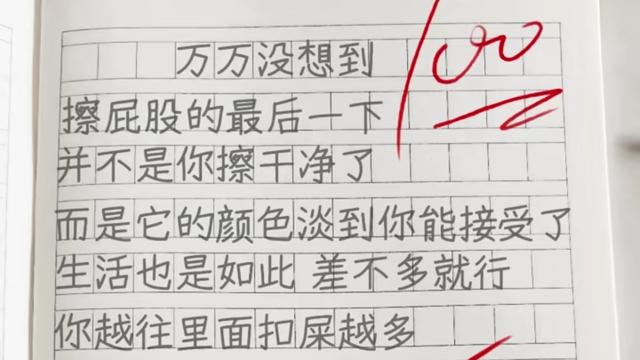 万万没想到
100
擦屁股的最后一下
并不是你擦干净了
而是它的颜色淡到你能接受了
生活也是如此 差不多就行
你越往里面扣屎越多